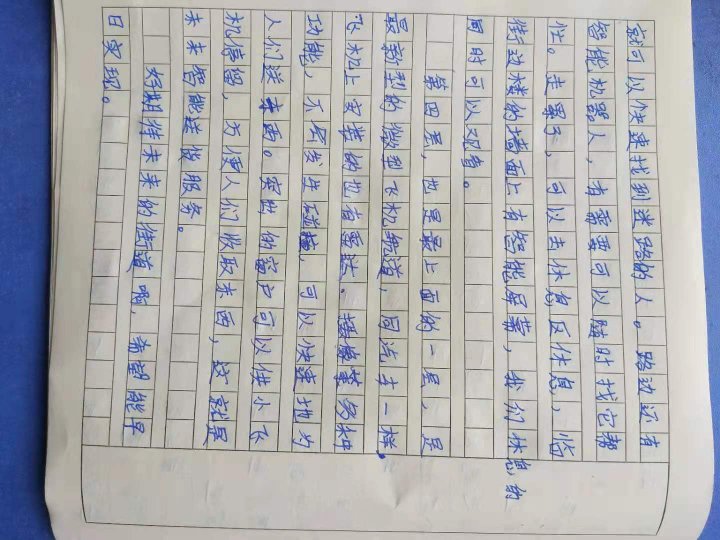 就可以快速找到迷路的人。路边还有
智能机器人，有需要可以随时找它帮
忙。走累了，可以去休息区休息，临
街边楼的墙面上有智能屏幕，我们休息的
同时可以观看。
第四层，也是最上面的一层，是
最新型的微型飞机轨道，同汽车一样，
飞机上安装的也有雷达。摄像等多种
功能，不会发生碰撞，可以快速地为
人们送东西。突出的窗户可以供小飞
机停留，方便人们收取东西，这就是
未来智能送货服务。
好期待未来的街道啊，希望能早
日实现。